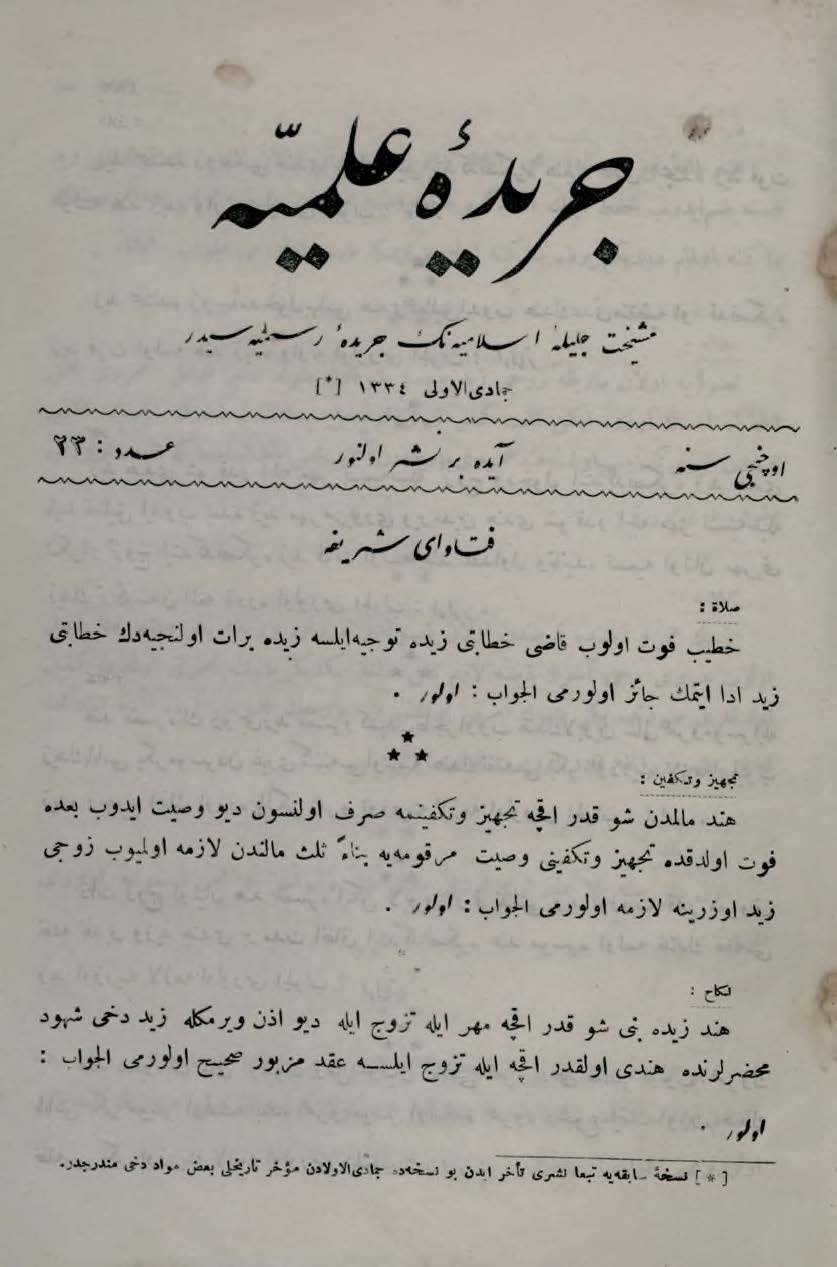 جريدۀ علميّه
مشيخت جليلۀ اسلاميه‌نك جريدۀ رسميه‌سيدر
جمادی‌الاولی ١٣٣٤ [*]
اوچنجی سنه آيده بر نشر اولنور عدد : ٢٣
فتاوای شريفه
صلاة :
خطيب فوت اولوب قاضی خطابتی زيده توجيه‌ايلسه زيده برات اولنجيه‌دك خطابتی
زيد ادا ايتمك جائز اولورمی الجواب : اولور .
تجهيز وتكفين :
هند مالمدن شو قدر اقچه تجهيز وتكفينمه صرف اولنسون ديو وصيت ايدوب بعده
فوت اولدقده تجهيز وتكفينی وصيت مرقومه‌يه بناءً ثلث مالندن لازمه اولميوب زوجی
زيد اوزرينه لازمه اولورمی الجواب : اولور .
نكاح :
هند زيده بنی شو قدر اقچه مهر ايله تزوج ايله ديو اذن ويرمكله زيد دخی شهود
محضرلرنده هندی اولقدر اقچه ايله تزوج ايلسه عقد مزبور صحيح اولورمی الجواب :
اولور .
[ * ] نسخۀ سابقه‌يه تبعا نشری تأخر ايدن بو نسخه‌ده جمادی‌الاولادن مؤخر تاريخلی بعض مواد دخی مندرجدر.